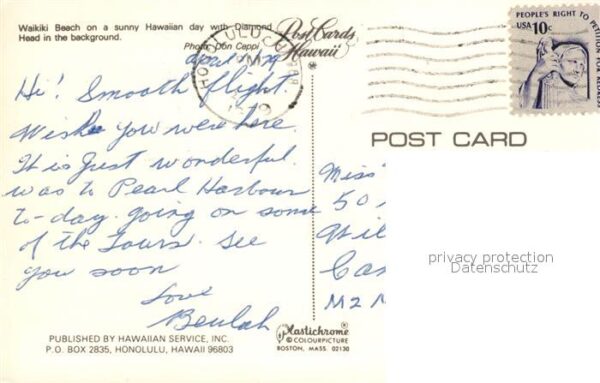 Waikiki Beach on a sunny Hawaiian day with Diamond
Head in the background.
Photo: Don Ceppi
Post Cards
Hawaii
HONOLULU
PEOPLE'S RIGHT TO PETITION FOR REDRESS
USA 10c
POST CARD
April
Hi! Smooth flight.
Wish you were here.
It is just wonderful.
was to Pearl Harbour
to-day. going on some
of the Tours. See
you soon
Love
Beulah
Miss
50
Can
M2
privacy protection
Datenschutz
PUBLISHED BY HAWAIIAN SERVICE, INC.
P.O. BOX 2835, HONOLULU, HAWAII 96803
Plastichrome®
© COLOURPICTURE
BOSTON, MASS 02130